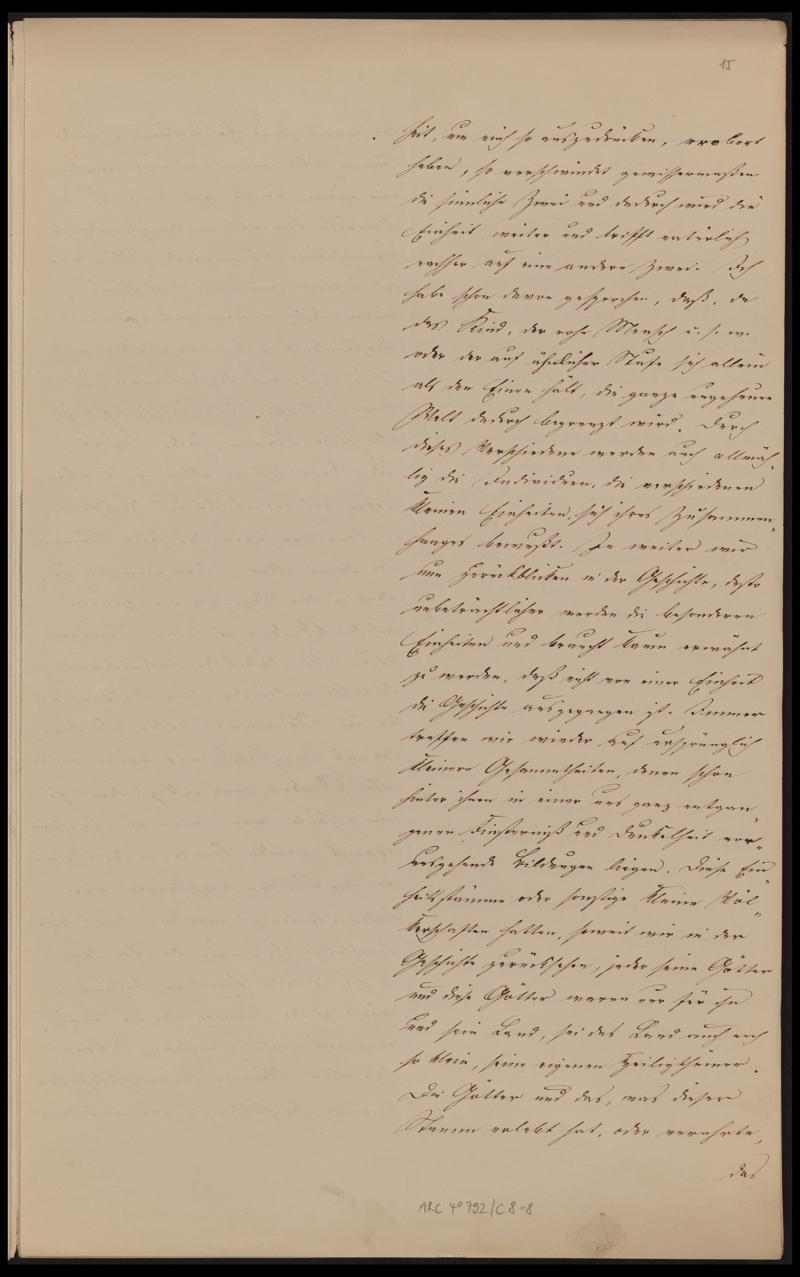 15
heit, um mich so auszudrücken, erobert
haben, so verschwindet gewissermaßen
die sinnliche Zwei und dadurch wird die
Einheit weiter und trifft natürlich
nachher auf eine andere Zwei. Ich
habe schon davon gesprochen, daß, da
das Kind, der rohe Mensch u. s. w.
oder der auf ähnlicher Stufe sich allein
als den Einen hält, die ganze ungeheure
Welt dadurch begrenzt wird. Durch
dieses Verschiedene werden auch allmäh-
lig die Individuen, die verschiedenen
kleinen Einheiten, sich ihres Zusammen-
hanges bewußt. Je weiter wir
nun zurückblicken in der Geschichte, desto
unbeträchtlicher werden die besonderen
Einheiten und braucht kaum erwähnt
zu werden, daß nicht von einer Einheit
die Geschichte ausgegangen ist. Immer
treffen wir wieder auf ursprünglich
kleinere Gesammtheiten, denen schon
hinter ihnen in einer uns ganz entgan-
genen Finsterniß und Dunkelheit vor-
ausgehende Bildungen liegen. Diese Ein-
heitsstämme oder sonstige kleine Völ-
kerschaften hatten, soweit wir in der
Geschichte zurücksehen, jeder seine Götter
und diese Götter waren nur für ihn
und sein Land, sei das Land auch noch
so klein, seine eigenen Heiligthümer.
Die Götter und das, was dieser
Stamm erlebt hat, oder verehrte,
das
ARC 4° 792/C8-8